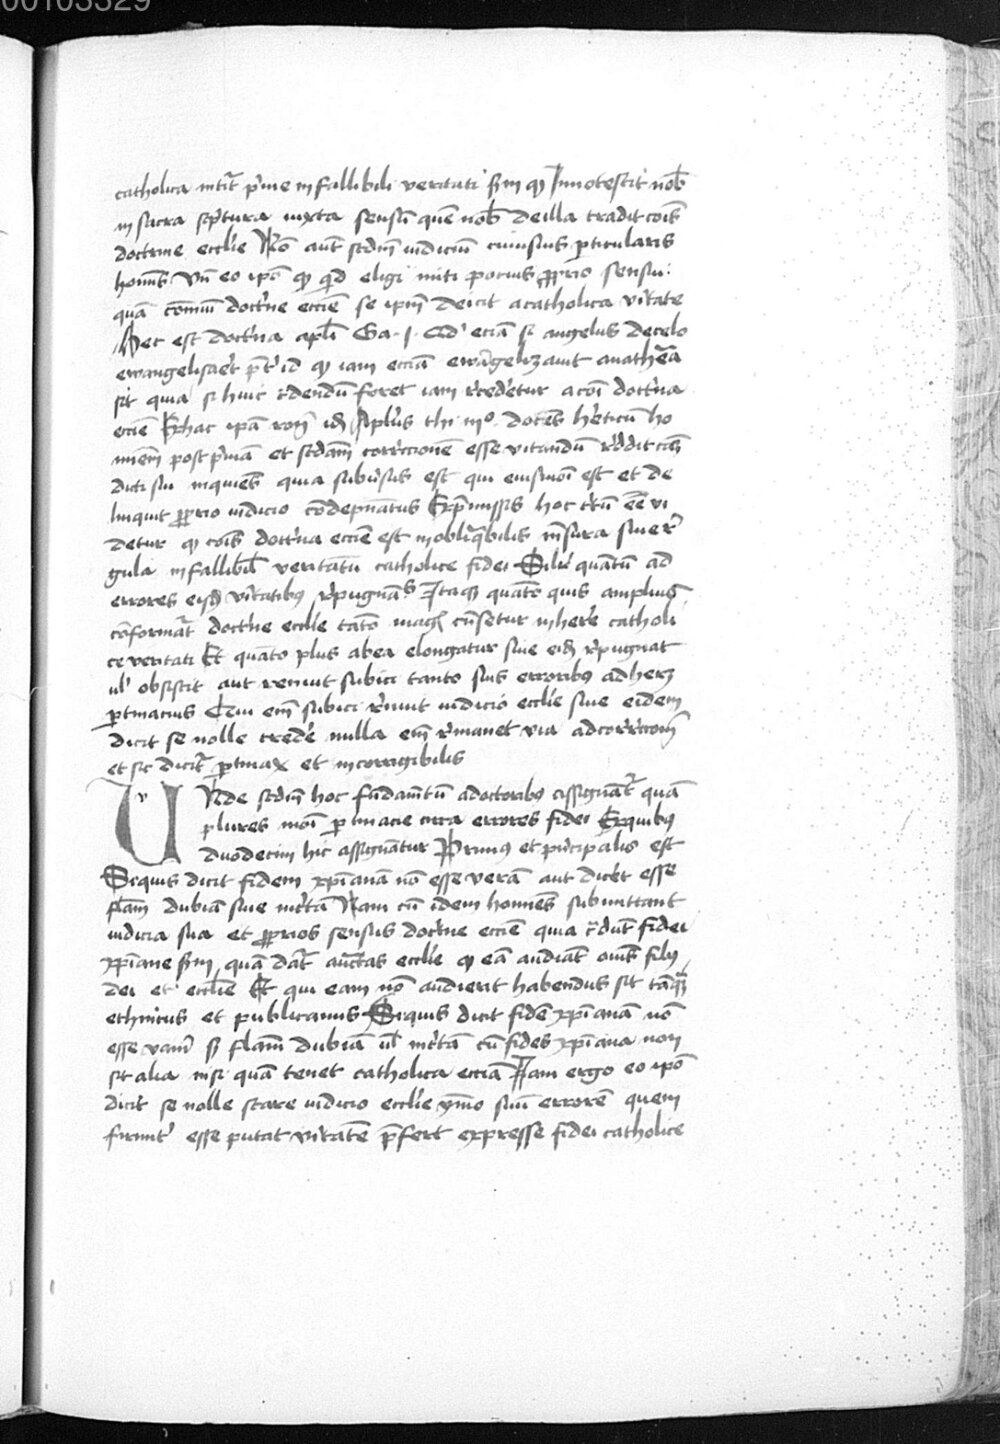 00103329
catholica intit᷑ p͛me infallibili veritati ẜm qͩ Innotescit nob̄
in sacra sc͛ptura iuxta sensū quē nob̄ de illa tradit cōis
doctrine eccl̄ie Nō aut̄ scdm̄ iudiciū cuiusuis ꝑticularis
homīs Vn̄ eo ip̄o qͩ qͥd eligi initi pocius ꝓprio sensui
quā cōmuni doct͛ne eccīe se ip̄m deicit a catholica v͛itate
Hec est doct͛na apl̄i Ga · j · Qd͛ eciā si angelus de celo
ewangelisaret p͛t id qͩ iam eciā ewāgelizauit anathēa
sit quia si huic c͛dendū foret iam r͛cedetur a cōi doct͛na
eccīe Ex hac ip̄a rōne id̄ Apl̄us thi · iijº · docēs h͛eticū ho
minem post p͛mā et scdam̄ correccionē esse vitandū r͛ddit cām
dicti sui inquiēs quia subu͛sus est qui eiusmōi est et de
linquit ꝓprio iudicio condēpnatus Ex p͛missis hoc t͛tū eē vi
detur qͩ cōis doct͛na eccīe est in obliq͛bilis mēsura siue r͛
gula infallibil̄ veritatum catholice fidei Sil͛r quātū ad
errores eisd̄ v͛itatibꝰ r͛pugnā͛s Itaqꝫ quāto quis amplius
cōformat᷑ doct͛ne eccl̄ie tāto maḡ cēsetur inhere͛ catholi
ce veritati Et quāto plus ab ea elongatur siue eid̄ r͛pugnat
ul̄ obsistit aut renuit subici tanto suis erroribꝰ adher͛
ꝑtinacius Cui em̄ subici r͛nuit iudicio eccl̄ie siue eidem
dicit se nolle crede͛ nulla em̄ r͛manet via ad cor͛rcōm
et sic dicit᷑ ꝑtinax et incorrigibilis
UNde scdm̄ hoc fūdam̄tū a doctoribꝰ assignāt᷑ quā
plures mōi ꝑtinacie circa errores fidei Ex quibꝰ
duodecim hic assignātur Primꝰ et pricipalis est
Si quis dicit fidem xp̄ianā nō esse verā aut dicet esse
fl̄am dubiā siue inc͛tā Nam cū idem homīes submittant
iudicia sua et ꝓprios sensus doct͛ne eccīe quia c͛dūt fidei
xp̄iane ẜm quā dat᷑ auct͛as eccl̄ie qͩ eā audiāt om̄s filij
dei et eccl̄ie Et qui eam nō audierit habendus sit tāqͣꝫ
ethnicus et publicanus Si quis dicit fidē xp̄ianā nō
esse v͛am ẜ fl̄am dubiā ul̄ inc͛tā cū fides xp̄iana non
sit alia nisi quā tenet catholica eccīa Iam ergo eo ip̄o
dicit se nolle stare iudicio eccl̄ie ymo suū errorē quem
firmit͛ esse putat v͛itatē p͛fert expresse fidei catholice